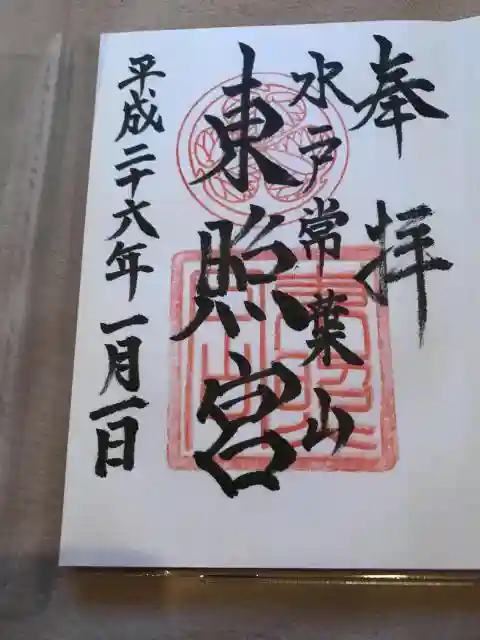 奉拝
水戸常葉山
東照宮
平成二十六年一月一日